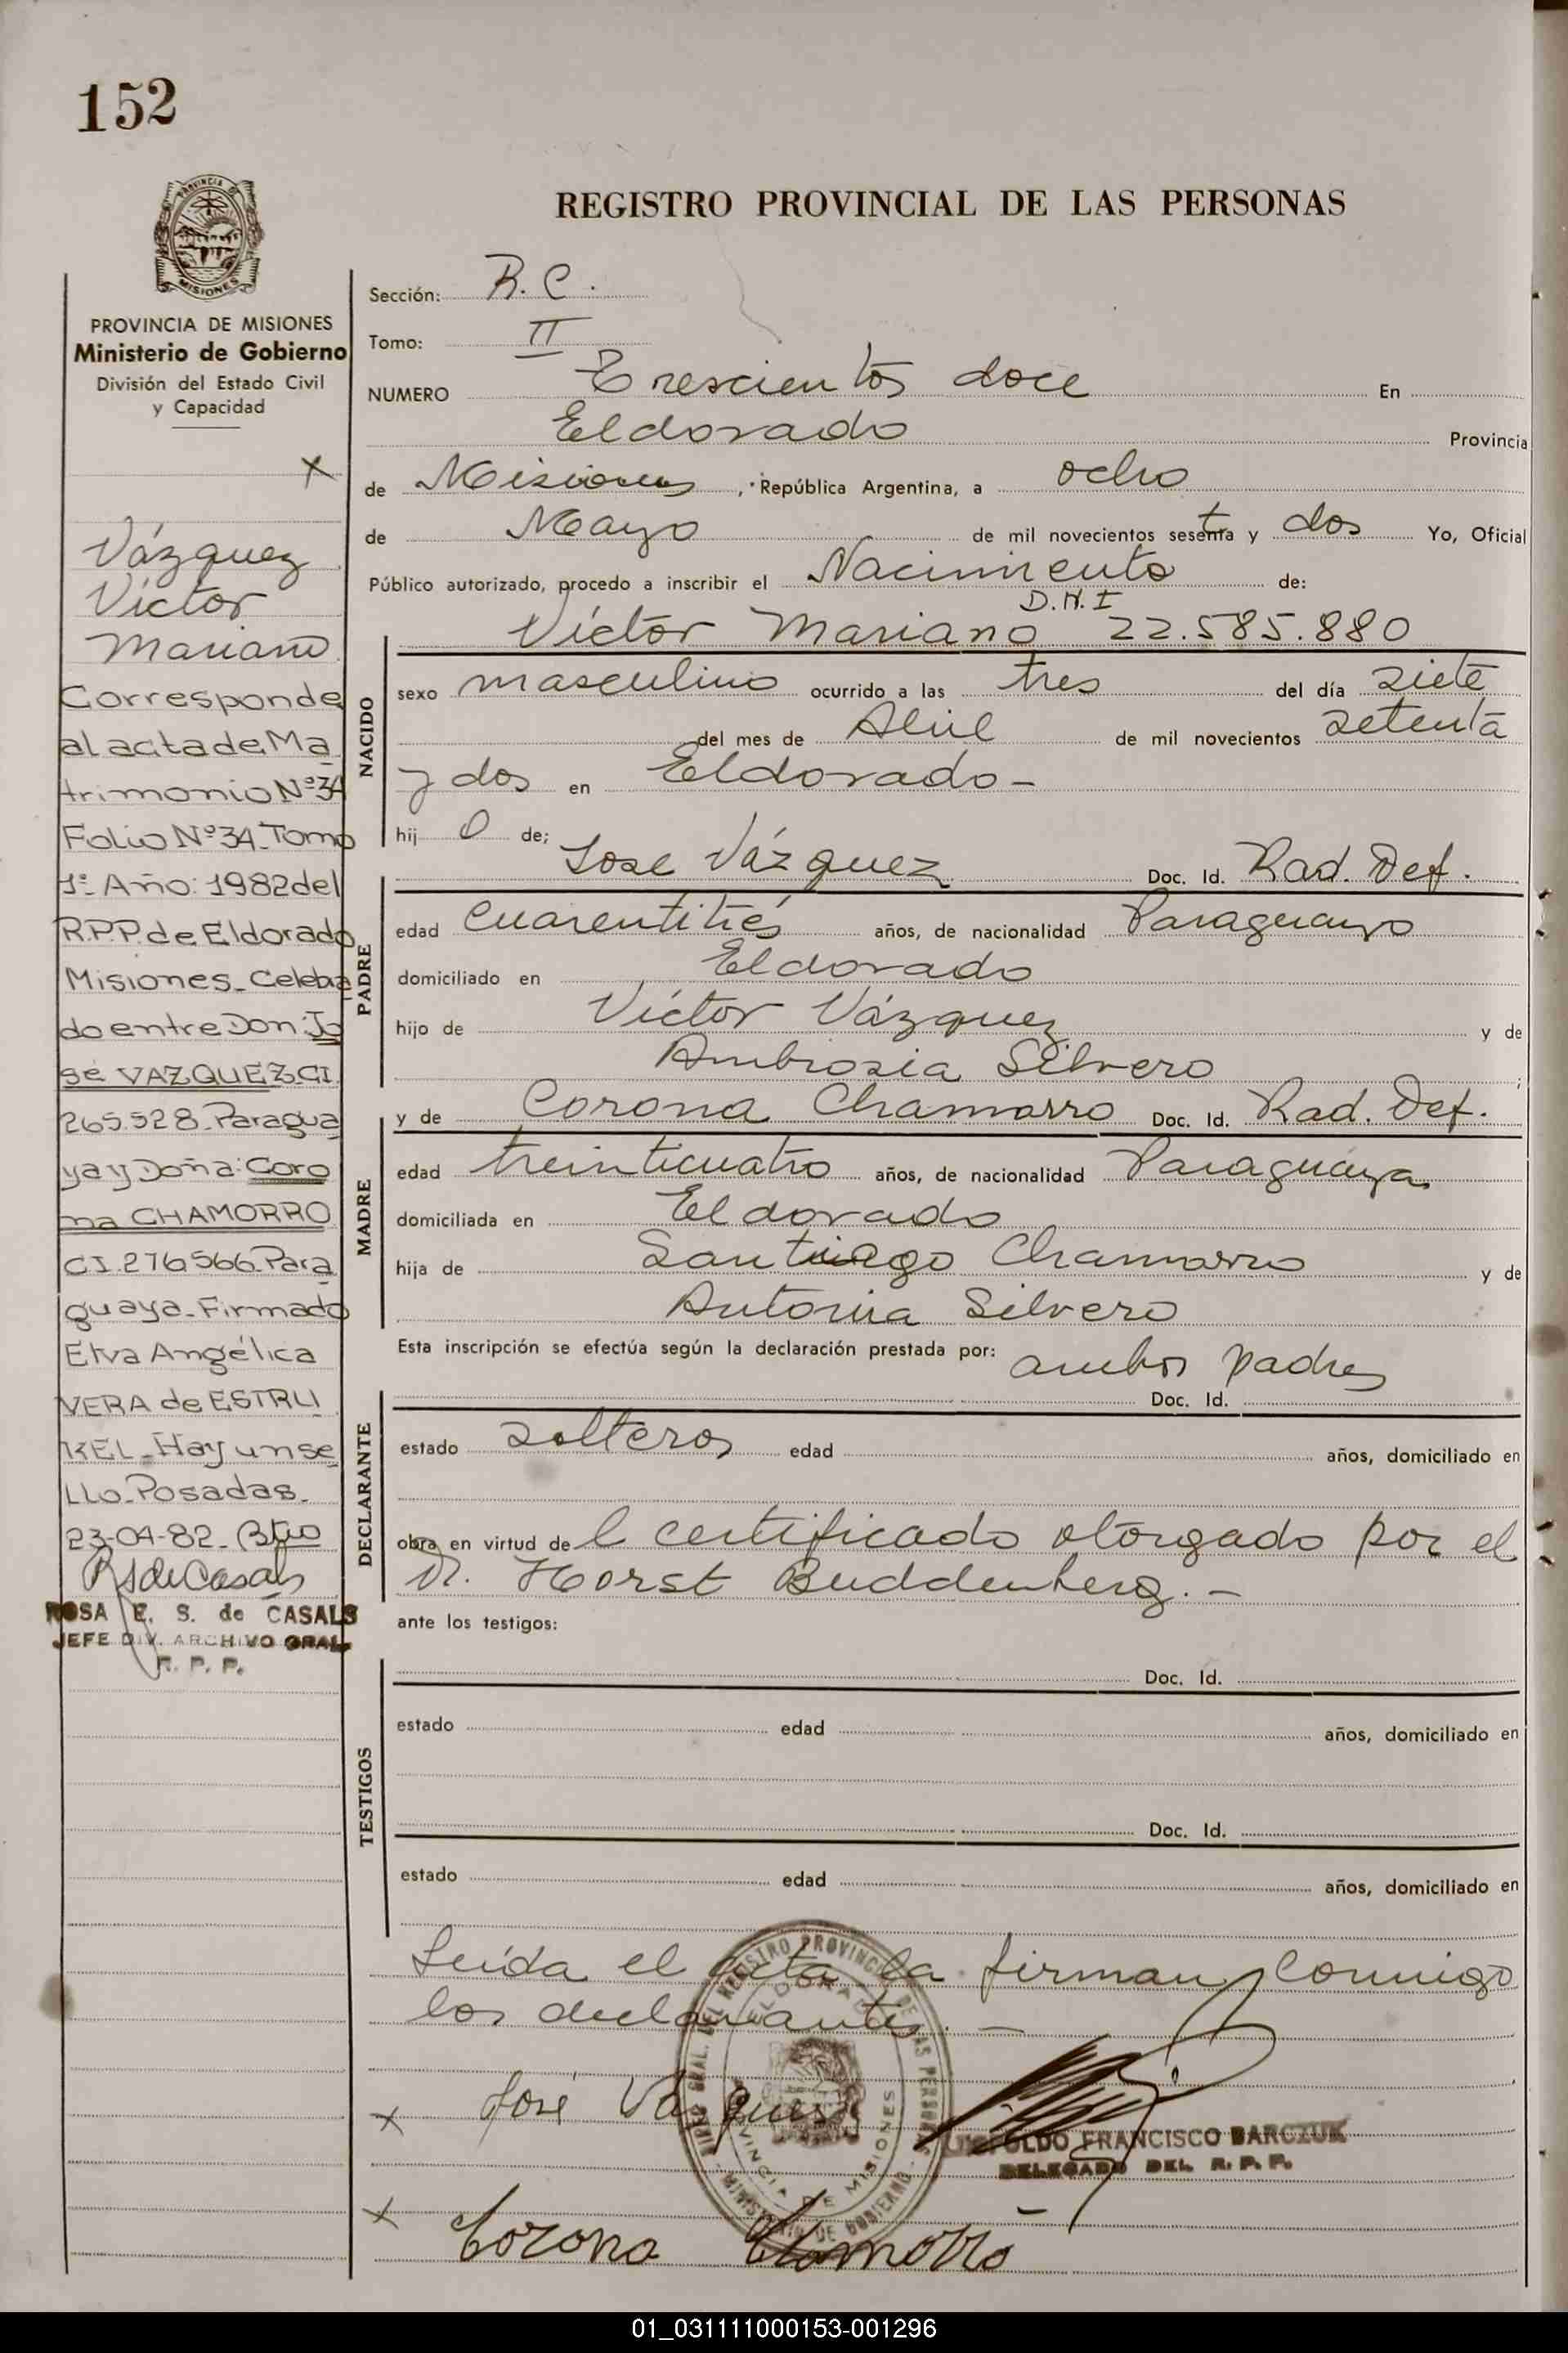 152
PROVINCIA DE
MISIONES
PROVINCIA DE MISIONES
Ministerio de Gobierno
División del Estado Civil
y Capacidad
x
Vázquez
Víctor
Mariano
Corresponde
al acta de Ma
trimonio Nº 34
Folio Nº 34_Tomo
1º Año: 1982 del
R.P.P. de Eldorado
Misiones_Celebra
do entre Don: Jo
sé VAZQUEZ_CI.
265.528_Paragua
ya y Doña: Coro
na CHAMORRO
CI. 276566_Para
guaya_Firmado
Elva Angélica
VERA de ESTRU
KEL_Hay un se
LLo_Posadas_
23-04-82_
RSdeCasals
ROSA E. S. de CASALS
JEFE DIV. ARCHIVO GRAL.
R. P. P.
REGISTRO PROVINCIAL DE LAS PERSONAS
Sección: R. C.
Tomo: II
NUMERO Trescientos doce En
Eldorado Provincia
de Misiones, República Argentina, a ocho
de Mayo de mil novecientos sesenta y dos Yo, Oficial
Público autorizado, procedo a inscribir el Nacimiento de:
D.N.I
Víctor Mariano 22.585.880
NACIDO
sexo masculino ocurrido a las tres del día siete
del mes de Abril de mil novecientos setenta
y dos en Eldorado-
hij o de;
José Vázquez Doc. Id. Rad. Def.
PADRE
edad cuarentitrés años, de nacionalidad Paraguayo
domiciliado en Eldorado
hijo de Víctor Vázquez y de
Ambrosia Silvero
y de Corona Chamorro Doc. Id. Rad. Def.
MADRE
edad treinticuatro años, de nacionalidad Paraguaya
domiciliada en Eldorado
hija de Santiago Chamorro y de
Antonia Silvero
Esta inscripción se efectúa según la declaración prestada por: ambos padres
Doc. Id.
DECLARANTE
estado solteros edad años, domiciliado en
obra en virtud de l certificado otorgado por el
Dr. Horst Buddenberg.-
ante los testigos:
Doc. Id.
TESTIGOS
estado edad años, domiciliado en
Doc. Id.
estado edad años, domiciliado en
Leída el acta la firman conmigo
los declarantes.-
x José Vasquez
LEOPOLDO FRANCISCO BARCZUK
DELEGADO DEL R. P. P.
DIREC. GRAL. DEL REGISTRO PROVINCIAL DE LAS PERSONAS
ELDORADO
PROVINCIA DE MISIONES
MINISTERIO DE GOBIERNO
x Corona Chamorro
01_031111000153-001296